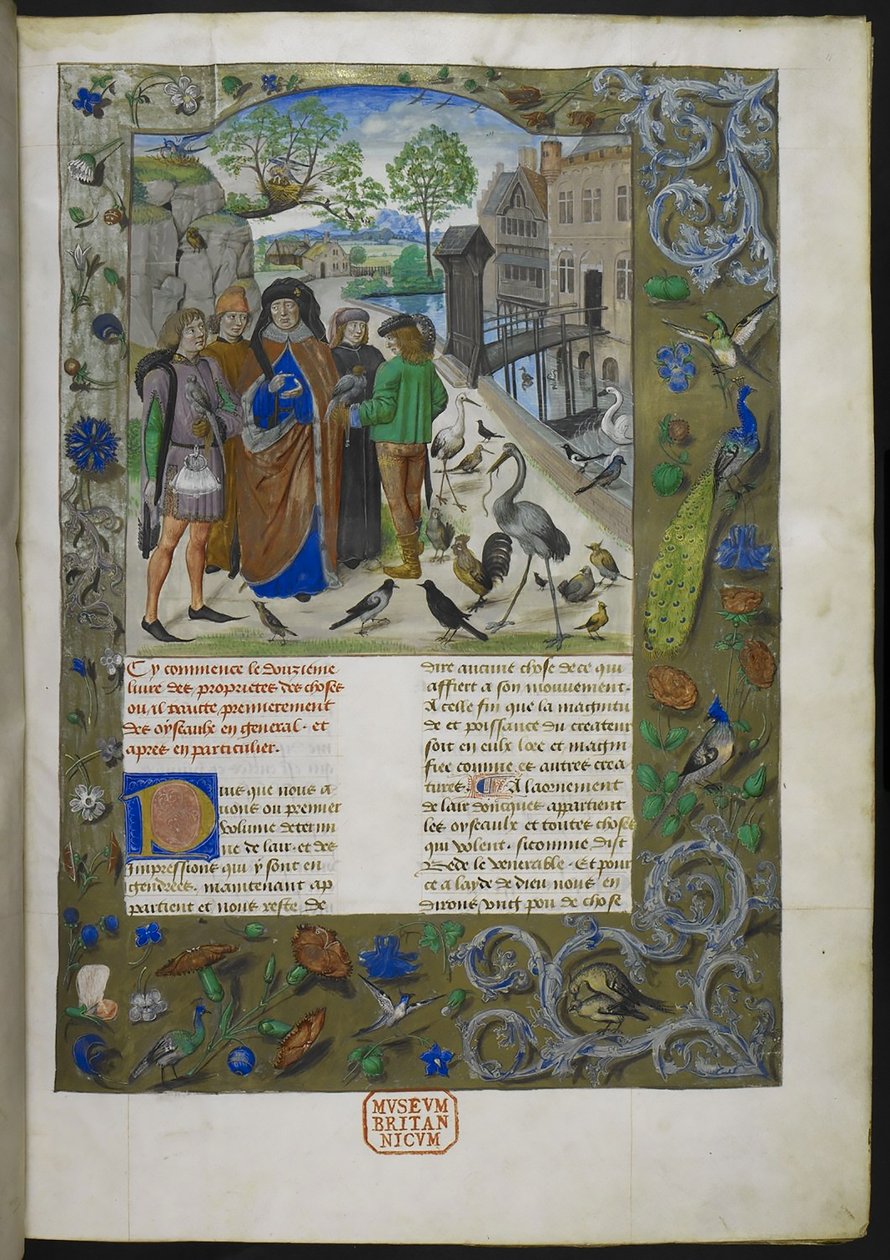 Cy commence le douzieme
livre des proprietes des choses
ou il traicte premierement
des oyseaulx en general · et
apres en particulier ·
Puis que nous a
uons ou premier
volume determi
ne de lair · et des
impressions qui y sont en
gendrees · maintenant ap
partient et nous reste de
dire aucune chose de ce qui
affiert a son mouuement ·
A celle fin que la magnitu
de et poissance du createur
soit en eulx loee et magni
fiee comme es autres crea
tures · A laornement
de lair doncques appartient
les oyseaulx et toutes choses
qui volent · sicomme dist
Bede le venerable · Et pour
ce a layde de dieu nous en
dirons vng pou de chose
MVSEVM
BRITAN
NICVM